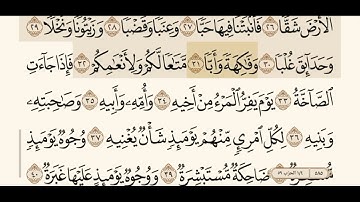 ٱلْأَرْضَ شَقًّا ٢٦ فَأَنۢبَتْنَا فِيهَا حَبًّا ٢٧ وَعِنَبًا وَقَضْبًا ٢٨ وَزَيْتُونًا وَنَخْلًا ٢٩
وَحَدَآئِقَ غُلْبًا ٣٠ وَفَٰكِهَةً وَأَبًّا ٣١ مَّتَٰعًا لَّكُمْ وَلِأَنْعَٰمِكُمْ ٣٢ فَإِذَا جَآءَتِ
ٱلصَّآخَّةُ ٣٣ يَوْمَ يَفِرُّ ٱلْمَرْءُ مِنْ أَخِيهِ ٣٤ وَأُمِّهِۦ وَأَبِيهِ ٣٥ وَصَٰحِبَتِهِۦ
وَبَنِيهِ ٣٦ لِكُلِّ ٱمْرِئٍ مِّنْهُمْ يَوْمَئِذٍ شَأْنٌ يُغْنِيهِ ٣٧ وُجُوهٌ يَوْمَئِذٍ
ضَاحِكَةٌ مُّسْتَبْشِرَةٌ ٣٩ وَوُجُوهٌ يَوْمَئِذٍ عَلَيْهَا غَبَرَةٌ ٤٠
٥٨٥